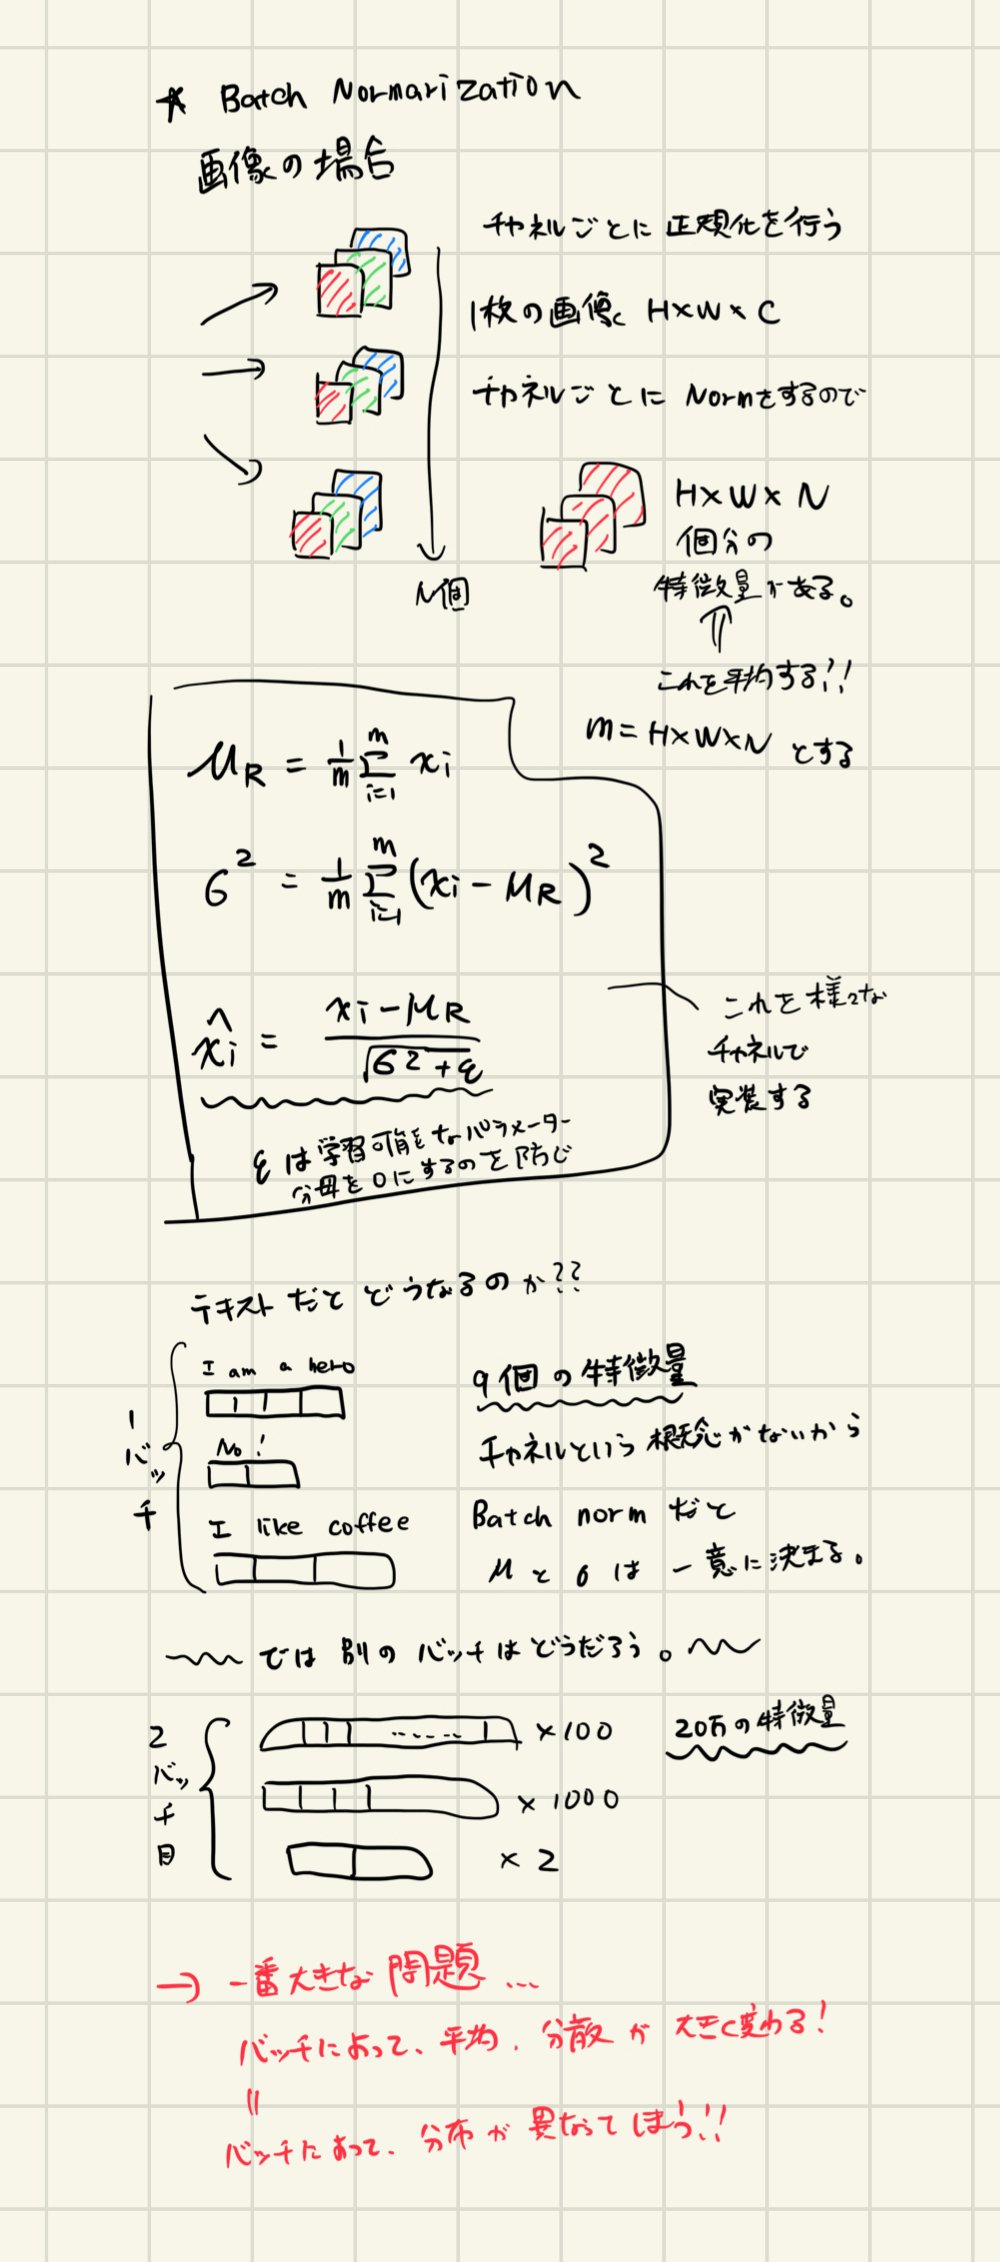 ★ Batch Normarization
画像の場合
チャネルごとに正規化を行う
1枚の画像 H×W×C
チャネルごとに Normをするので
H×W×N
個分の
特徴量がある。
N個
⇑
これを平均する!!
m = H×W×N とする
μR = 1/m Σ(i=1→m) xi
σ² = 1/m Σ(i=1→m) (xi − μR)²
x̂i = (xi − μR) / √(σ² + ε)
εは学習可能なパラメーター
分母を0にするのを防ぐ
これを様々な
チャネルで
実装する
テキストだと どうなるのか??
1バッチ
I am a hero
No!
I like coffee
9個の特徴量
チャネルという概念がないから
Batch norm だと
μとσは一意に決まる。
では 別の バッチは どうだろう。
2バッチ目
...... ×100
×1000
×2
20万の特徴量
→ 一番大きな 問題 ...
バッチによって、平均、分散が 大きく変わる!
॥
バッチによって、分布が 異なってしまう!!